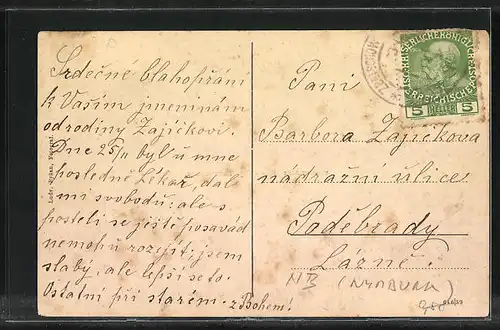 Srdečné blahopřání
k Vašim jmeninám
od rodiny Zajíčkovi.
Dne 25/11 byl u mne
posledně Lékař, dali
mi svobodu: ale s
posteli se ještě posavád
nemohu rozejít; jsem
slabý, ale lepší se to.
Ostatní při starém. z Bohem!
Paní
Barbora Zajíčkova
nádražní ulice
Poděbrady
Lázně.
(NYMBURK)
KAISERLICHE KÖNIGLICHE
ÖSTERREICHISCHE
5 HELLER 5